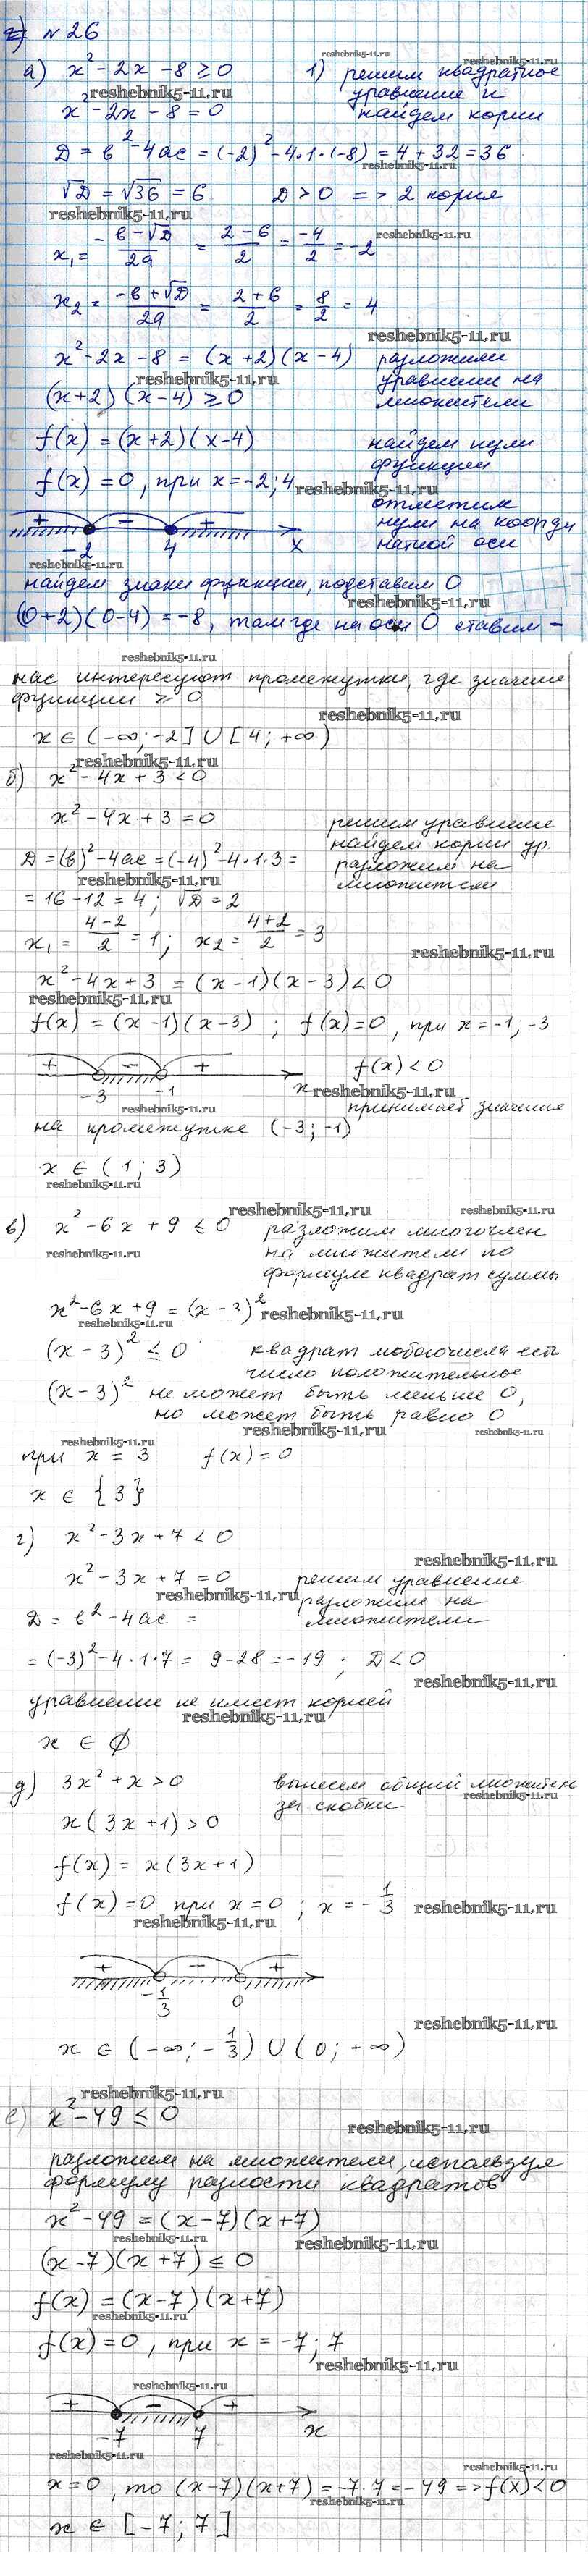 г) №26
reshebnik5-11.ru
а) x² - 2x - 8 ≥ 0 1) решим квадратное
reshebnik5-11.ru уравнение и
x² - 2x - 8 = 0 найдем корни
D = b² - 4ac = (-2)² - 4·1·(-8) = 4 + 32 = 36
√D = √36 = 6 D > 0 => 2 корня
reshebnik5-11.ru
x₁ = (-b - √D)/2a = (2 - 6)/2 = -4/2 = -2 reshebnik5-11.ru
x₂ = (-b + √D)/2a = (2 + 6)/2 = 8/2 = 4
reshebnik5-11.ru
x² - 2x - 8 = (x + 2)(x - 4) разложим
reshebnik5-11.ru уравнение на
(x+2)(x-4) ≥ 0 множители
f(x) = (x+2)(x-4) найдем нули
функции
f(x) = 0, при x = -2; 4 reshebnik5-11.ru
отметим
+ - + нули на коорди
-2 4 x натной оси
reshebnik5-11.ru
найдем знаки функции, подставим 0
reshebnik5-11.ru
(0+2)(0-4) = -8, там где на оси 0 ставим -
reshebnik5-11.ru
нас интересуют промежутки, где значение
функции ≥ 0
reshebnik5-11.ru
x ∈ (-∞; -2] ∪ [4; +∞)
reshebnik5-11.ru
б) x² - 4x + 3 < 0
x² - 4x + 3 = 0 решим уравнение
найдем корни ур.
D = (b)² - 4ac = (-4)² - 4·1·3 = разложим на
reshebnik5-11.ru множители
= 16 - 12 = 4; √D = 2
x₁ = (4-2)/2 = 1; x₂ = (4+2)/2 = 3
reshebnik5-11.ru
x² - 4x + 3 = (x-1)(x-3) < 0
reshebnik5-11.ru
f(x) = (x-1)(x-3); f(x) = 0, при x = -1; -3
+ - + f(x) < 0
-3 -1 x reshebnik5-11.ru
reshebnik5-11.ru принимает значение
на промежутке (-3; -1)
x ∈ (1; 3)
reshebnik5-11.ru
reshebnik5-11.ru reshebnik5-11.ru
в) x² - 6x + 9 ≤ 0 разложим многочлен
reshebnik5-11.ru на множители по
формуле квадрат суммы
x² - 6x + 9 = (x - 3)² reshebnik5-11.ru
reshebnik5-11.ru
(x - 3)² ≤ 0 квадрат любого числа есть
число положительное
(x - 3)² не может быть меньше 0,
но может быть равно 0
reshebnik5-11.ru reshebnik5-11.ru reshebnik5-11.ru
при x = 3 f(x) = 0
x ∈ {3}
г) x² - 3x + 7 < 0
reshebnik5-11.ru
x² - 3x + 7 = 0 решим уравнение
reshebnik5-11.ru разложим на
D = b² - 4ac = множители
= (-3)² - 4·1·7 = 9 - 28 = -19; D < 0
reshebnik5-11.ru
уравнение не имеет корней
reshebnik5-11.ru
x ∈ ∅
д) 3x² + x > 0 вынесем общий множител
reshebnik5-11.ru
за скобки
x(3x + 1) > 0
f(x) = x(3x+1)
f(x) = 0 при x = 0; x = -1/3 reshebnik5-11.ru
reshebnik5-11.ru
+ - +
-1/3 0
reshebnik5-11.ru
x ∈ (-∞; -1/3) ∪ (0; +∞)
reshebnik5-11.ru
е) x² - 49 ≤ 0
reshebnik5-11.ru
разложим на множители, используя
формулу разности квадратов
x² - 49 = (x-7)(x+7)
reshebnik5-11.ru reshebnik5-11.ru
(x-7)(x+7) ≤ 0
f(x) = (x-7)(x+7)
reshebnik5-11.ru
f(x) = 0, при x = -7; 7
reshebnik5-11.ru
reshebnik5-11.ru
+ - +
-7 7 x
reshebnik5-11.ru
reshebnik5-11.ru
x = 0, то (x-7)(x+7) = -7·7 = -49 => f(x) < 0
reshebnik5-11.ru
x ∈ [-7; 7]